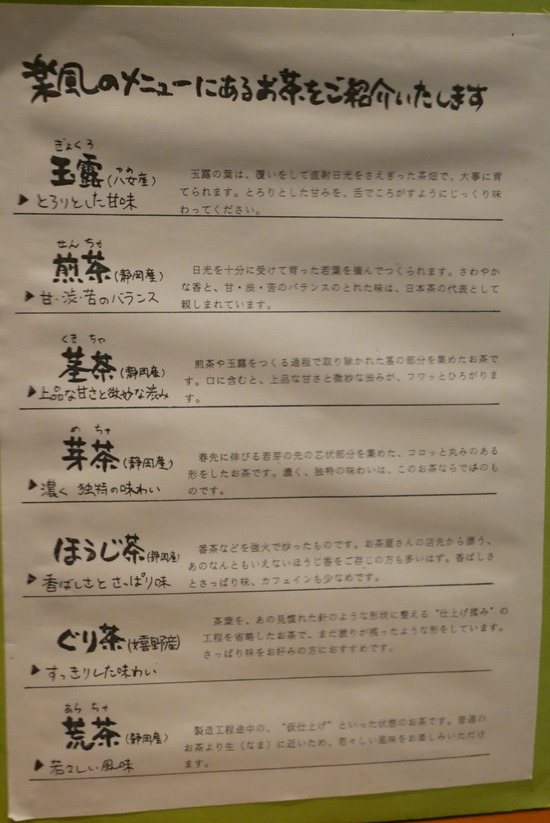 楽風のメニューにあるお茶をご紹介いたします
ぎょくろ
玉露(八女産)
▶とろりとした甘味
玉露の葉は、覆いをして直射日光をさえぎった茶畑で、大事に育
てられます。とろりとした甘みを、舌でころがすようにじっくり味
わってください。
せんちゃ
煎茶(静岡産)
▶甘・渋・苦のバランス
日光を十分に受けて育った若葉を摘んでつくられます。さわやか
な香と、甘・渋・苦のバランスのとれた味は、日本茶の代表として
親しまれています。
くきちゃ
茎茶(静岡産)
▶上品な甘さと微妙な渋み
煎茶や玉露をつくる過程で取り除かれた茎の部分を集めたお茶で
す。口に含むと、上品な甘さと微妙な渋みが、フワッとひろがりま
す。
めちゃ
芽茶(静岡産)
▶濃く 独特の味わい
春先に伸びる若芽の先の芯状部分を集めた、コロッと丸みのある
形をしたお茶です。濃く、独特の味わいは、このお茶ならではのも
のです。
ほうじ茶(静岡産)
▶香ばしさと さっぱり味
番茶などを強火で炒ったものです。お茶屋さんの店先から漂う、
あのなんともいえないほうじ香をご存じの方も多いはず。香ばしさ
とさっぱり味、カフェインも少なめです。
ぐり茶(嬉野産)
▶すっきりした味わい
茶葉を、あの見慣れた針のような形状に整える“仕上げ揉み”の
工程を省略したお茶で、まだ撚りが残ったような形をしています。
さっぱり味をお好みの方におすすめです。
あらちゃ
荒茶(静岡産)
▶若々しい風味
製造工程途中の、“仮仕上げ”といった状態のお茶です。普通の
お茶より生(なま)に近いため、若々しい風味をお楽しみいただけ
ます。